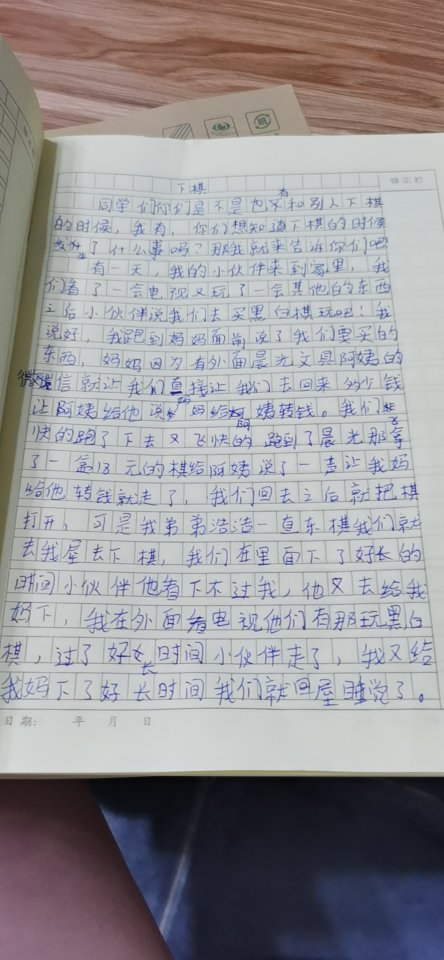 下棋
修正栏
同学们你们是不是也有和别人下棋
的时候，我有，你们想知道下棋的时候
发生了什么事吗？那我就来告诉你们吧
有一天，我的小伙伴来到家里，我
们看了一会电视又玩了一会其他的东西
之后小伙伴说我们去买黑白棋玩吧！我
说好，我跑到妈妈面前说了我们要买的
东西，妈妈因为有外面晨光文具阿姨的
微信就让我们直接让我们去回来多少钱
让阿姨给他说妈妈给阿姨转钱。我们
快的跑了下去又飞快的跑到了晨光那拿
了一盒18元的棋给阿姨说了一声让我妈
给他转钱就走了，我们回去之后就把棋
打开，可是我弟弟浩浩一直东棋我们就
去我屋去下棋，我们在里面下了好长的
时间小伙伴他看下不过我，他又去给我
妈下，我在外面看电视他们有那玩黑白
棋，过了好长时间小伙伴走了，我又给
我妈下了好长时间我们就回屋睡说了。
日期： 年 月 日